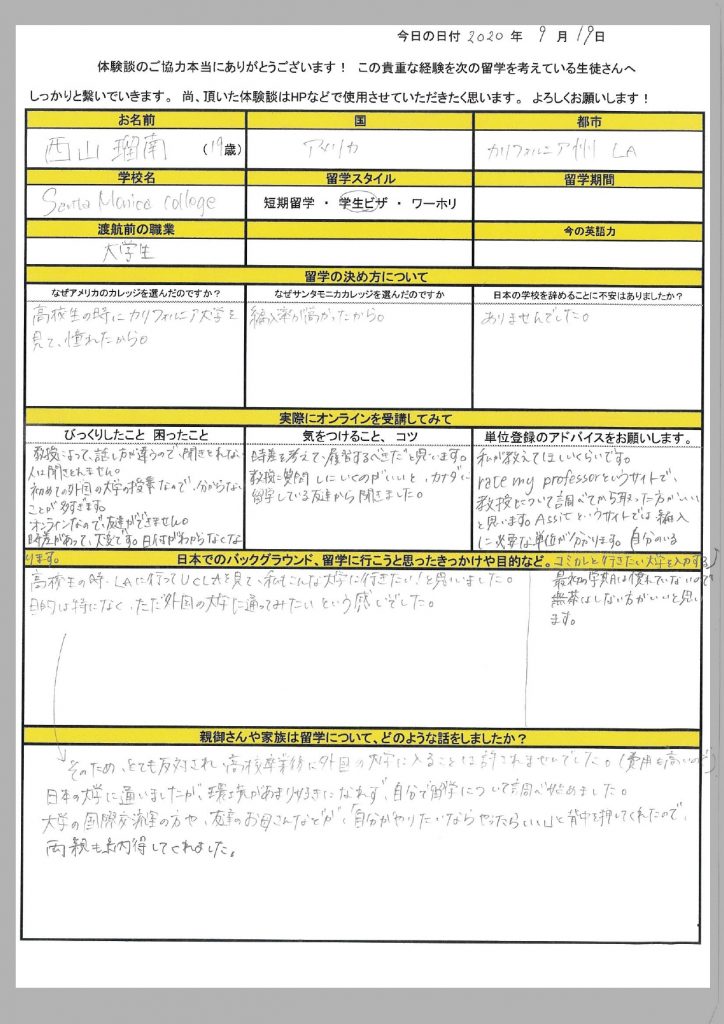 今日の日付 2020 年 9 月 19 日
体験談のご協力本当にありがとうございます！ この貴重な経験を次の留学を考えている生徒さんへ
しっかりと繋いでいきます。 尚、頂いた体験談はHPなどで使用させていただきたく思います。 よろしくお願いします！
お名前 国 都市
西山 瑠南 (19歳) アメリカ カリフォルニア州 LA
学校名 留学スタイル 留学期間
Santa Monica College 短期留学 ・ 学生ビザ ・ ワーホリ
渡航前の職業 今の英語力
大学生
留学の決め方について
なぜアメリカのカレッジを選んだのですか？ なぜサンタモニカカレッジを選んだのですか 日本の学校を辞めることに不安はありましたか？
高校生の時にカリフォルニア大学を
見て、憧れたから。
編入率が高かったから。
ありませんでした。
実際にオンラインを受講してみて
びっくりしたこと 困ったこと 気をつけること、コツ 単位登録のアドバイスをお願いします。
教授によって、話し方が違うので、聞きとれない
人は聞きとれません。
初めての外国の大学の授業なので、分からない
ことが多すぎます。
オンラインなので、友達ができません。
時差があって、大変です。日付がわからなくな
ります。
時差を考えて、履修するべきだと思います。
教授に質問しにいくのがいいと、カナダに
留学している友達から聞きました。
私が教えてほしいくらいです。
rate my professorというサイトで、
教授について調べてから取った方がいい
と思います。Assistというサイトでは編入
に必要な単位が分かります。自分のいる
コミカレと行きたい大学を入力する
最初の学期は慣れていないので
無茶はしない方がいいと思い
ます。
日本でのバックグラウンド、留学に行こうと思ったきっかけや目的など。
高校生の時、LAに行ってUCLAを見て、私もこんな大学に行きたい！と思いました。
目的は特になく、ただ外国の大学に通ってみたいという感じでした。
親御さんや家族は留学について、どのような話をしましたか？
そのため、とても反対され、高校卒業後に外国の大学に入ることは許されませんでした。(費用も高いので)
日本の大学に通いましたが、環境があまり好きになれず、自分で留学について調べ始めました。
大学の国際交流室の方や、友達のお母さんなどが、「自分がやりたいならやったらいい」と背中を押してくれたので、
両親も納得してくれました。